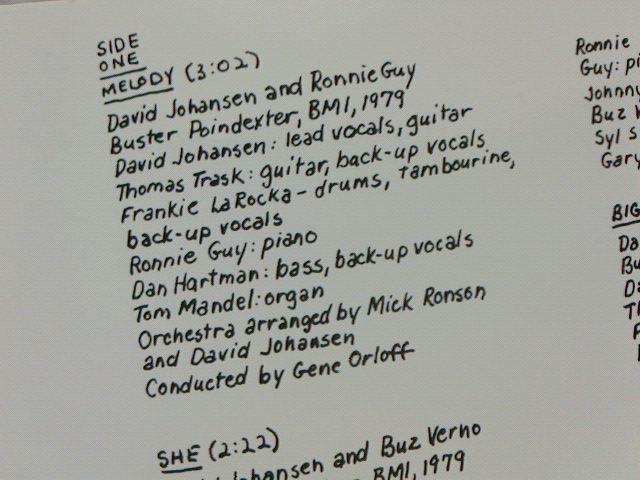 SIDE
ONE
MELODY (3:02)
David Johansen and Ronnie Guy
Buster Poindexter, BMI, 1979
David Johansen: lead vocals, guitar
Thomas Trask: guitar, back-up vocals
Frankie LaRocka - drums, tambourine,
back-up vocals
Ronnie Guy: piano
Dan Hartman: bass, back-up vocals
Tom Mandel: organ
Orchestra arranged by Mick Ronson
and David Johansen
Conducted by Gene Orloff
SHE (2:22)
Johansen and Buz Verno
BMI, 1979
Ronnie
Guy:
Johnny
Buz
Syl
Gary
BIG